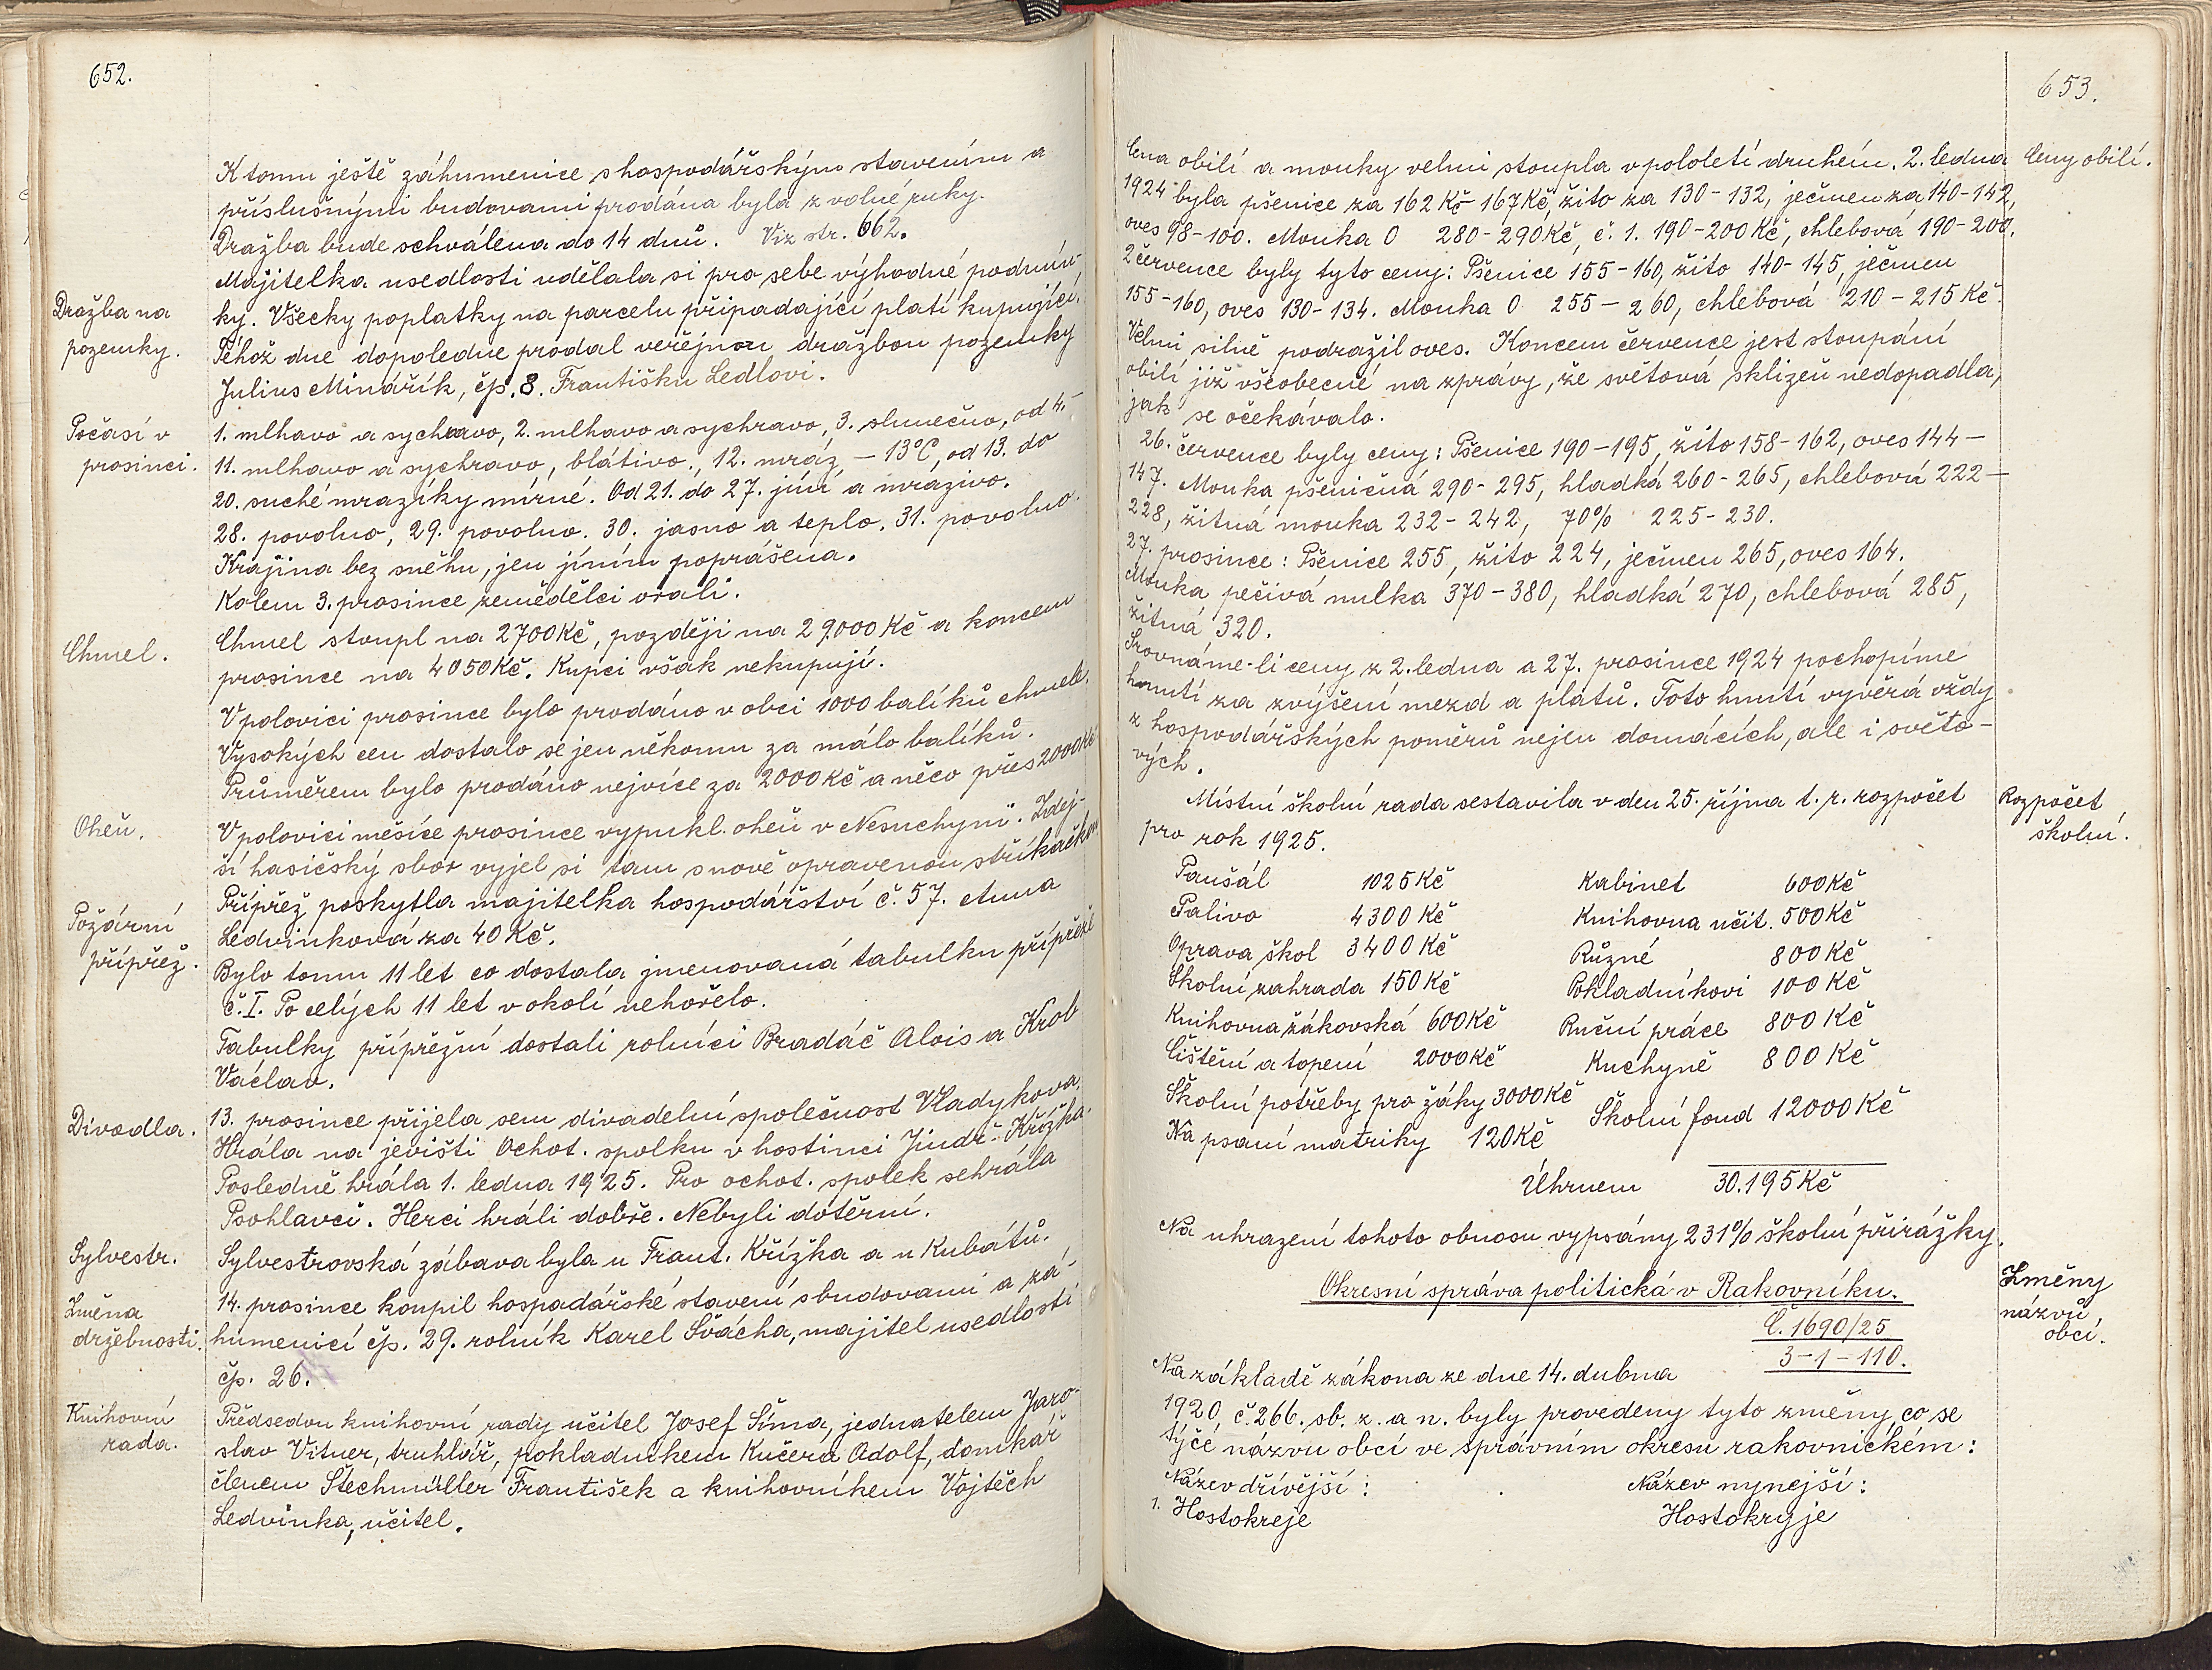 652.
K tomu ještě záhumenice s hospodářským stavením a
příslušnými budovami prodána byla z volné ruky.
Dražba bude schválena do 14 dnů. Viz str. 662.
Majitelka usedlosti udělala si pro sebe výhodné podmín-
ky. Všecky poplatky na parcelu připadající platí kupující.
Dražba na
pozemky.
Téhož dne dopoledne prodal veřejnou dražbou pozemky
Julius Minářík, čp. 8. Františku Ledlovi.
Počasí v
prosinci.
1. mlhavo a sychravo, 2. mlhavo a sychravo, 3. slunečno, od 4.-
11. mlhavo a sychravo, blátivo., 12. mráz, - 13°C, od 13. do
20. suché mrazíky mírné. Od 21. do 27. jíní a mrazivo.
28. povolno, 29. povolno. 30. jasno a teplo. 31. povolno.
Krajina bez sněhu, jen jíním poprášena.
Kolem 3. prosince zemědělci orali.
Chmel.
Chmel stoupl na 2700 Kč, později na 29.000 Kč a koncem
prosince na 4050 Kč. Kupci však nekupují.
V polovici prosince bylo prodáno v obci 1000 balíků chmele.
Vysokých cen dostalo se jen někomu za málo balíků.
Průměrem bylo prodáno nejvíce za 2000 Kč a něco přes 2000 Kč
Oheň.
V polovici měsíce prosince vypukl oheň v Nesuchyni. Zdej-
ší hasičský sbor vyjel si tam s nově opravenou stříkačkou
Požární
přípřež.
Přípřež poskytla majitelka hospodářství č. 57. Anna
Ledvinková za 40 Kč.
Bylo tomu 11 let co dostala jmenovaná tabulku přípřeže
č. I. Po celých 11 let v okolí nehořelo.
Tabulky přípřežní dostali rolníci Bradáč Alois a Krob
Václav.
Divadla.
13. prosince přijela sem divadelní společnost Vladykova.
Hrála na jevišti Ochot. spolku v hostinci Jindř. Křížka.
Posledně hrála 1. ledna 1925. Pro ochot. spolek sehrála
Psohlavci. Herci hráli dobře. Nebyli dotěrní.
Sylvestr.
Sylvestrovská zábava byla u Frant. Křížka a u Kubátů.
Změna
držebnosti.
14. prosince koupil hospadářské stavení s budovami a zá-
humenicí čp. 29. rolník Karel Švácha, majitel usedlosti
čp. 26.
Knihovní
rada.
Předsedou knihovní rady učitel Josef Šíma, jednatelem Jaro-
slav Vitner, truhlář, pokladníkem Kučera Adolf, domkář
členem Štechmüller František a knihovníkem Vojtěch
Ledvinka, učitel.
653.
Ceny obilí.
Cena obilí a mouky velmi stoupla v pololetí druhém. 2. ledna
1924 byla pšenice za 162 Kč - 167 Kč, žito za 130-132, ječmen za 140-142,
oves 98-100. Mouka 0 280-290 Kč, č. 1. 190-200 Kč, chlebová 190-200.
2 července byly tyto ceny: Pšenice 155-160, žito 140-145, ječmen
155-160, oves 130-134. Mouka 0 255-260, chlebová 210-215 Kč.
Velmi silně podražil oves. Koncem července jest stoupání
obilí již všeobecné na zprávy, že světová sklizeň nedopadla,
jak se očekávalo.
26. července byly ceny: Pšenice 190-195, žito 158-162, oves 144-
147. Mouka pšeničná 290-295, hladká 260-265, chlebová 222-
228, žitná mouka 232-242, 70% 225-230.
27. prosince: Pšenice 255, žito 224, ječmen 265, oves 164.
Mouka pečivá nulka 370-380, hladká 270, chlebová 285,
žitná 320.
Srovnáme-li ceny z 2. ledna a 27. prosince 1924 pochopíme
hnutí za zvýšení mezd a platů. Toto hnutí vyvěrá vždy
z hospodářských poměrů nejen domácích, ale i světo-
vých.
Rozpočet
školní.
Místní školní rada sestavila v den 25. října t. r. rozpočet
pro rok 1925.
Paušál 1025 Kč Kabinet 600 Kč
Palivo 4300 Kč Knihovna učit. 500 Kč
Oprava škol 3400 Kč Různé 800 Kč
Školní zahrada 150 Kč Pokladníkovi 100 Kč
Knihovna žákovská 600 Kč Ruční práce 800 Kč
Čištění a topení 2000 Kč Kuchyně 800 Kč
Školní potřeby pro žáky 3000 Kč Školní fond 12000 Kč
Na psaní matriky 120 Kč
Úhrnem 30.195 Kč
Na uhrazení tohoto obnosu vypsány 231% školní přirážky.
Změny
názvů
obcí.
Okresní správa politická v Rakovníku.
Č. 1690/25
3-1-110.
Na základě zákona ze dne 14. dubna
1920, č. 266. sb. z. a n. byly provedeny tyto změny, co se
týče názvu obcí ve správním okresu rakovnickém:
Název dřívější: Název nynější:
1. Hostokreje Hostokryje